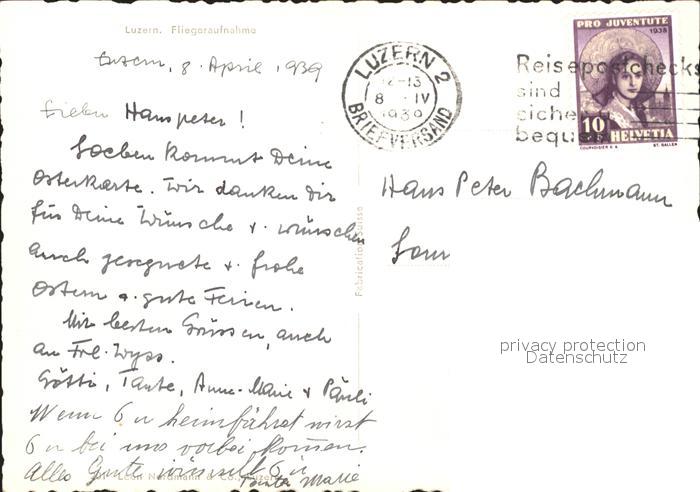 Luzern. Fliegeraufnahme
Luzern, 8. April 1939
Lieber Hanspeter!
Soeben kommt Deine
Osterkarte. Wir danken Dir
für Deine Wünsche & wünschen
auch gesegnete & frohe
Ostern & gute Ferien.
Mit besten Grüssen, auch
an Frl. Wyss.
Götti, Tante, Anne-Marie & Päuli
Wenn
heimfährst wirst
bei uns vorbei kommen.
Alles Gute wünscht
Marie
Leon Nordmann & Co., Luzern
Fabrication Suisse
LUZERN 2
12-13
8. IV
1939
BRIEFVERSAND
Reisepostchecks
sind
siche
beque
PRO JUVENTUTE
1938
10
HELVETIA
COURVOISIER S.A.
ST. GALLEN
Hans Peter Bachmann
privacy protection
Datenschutz